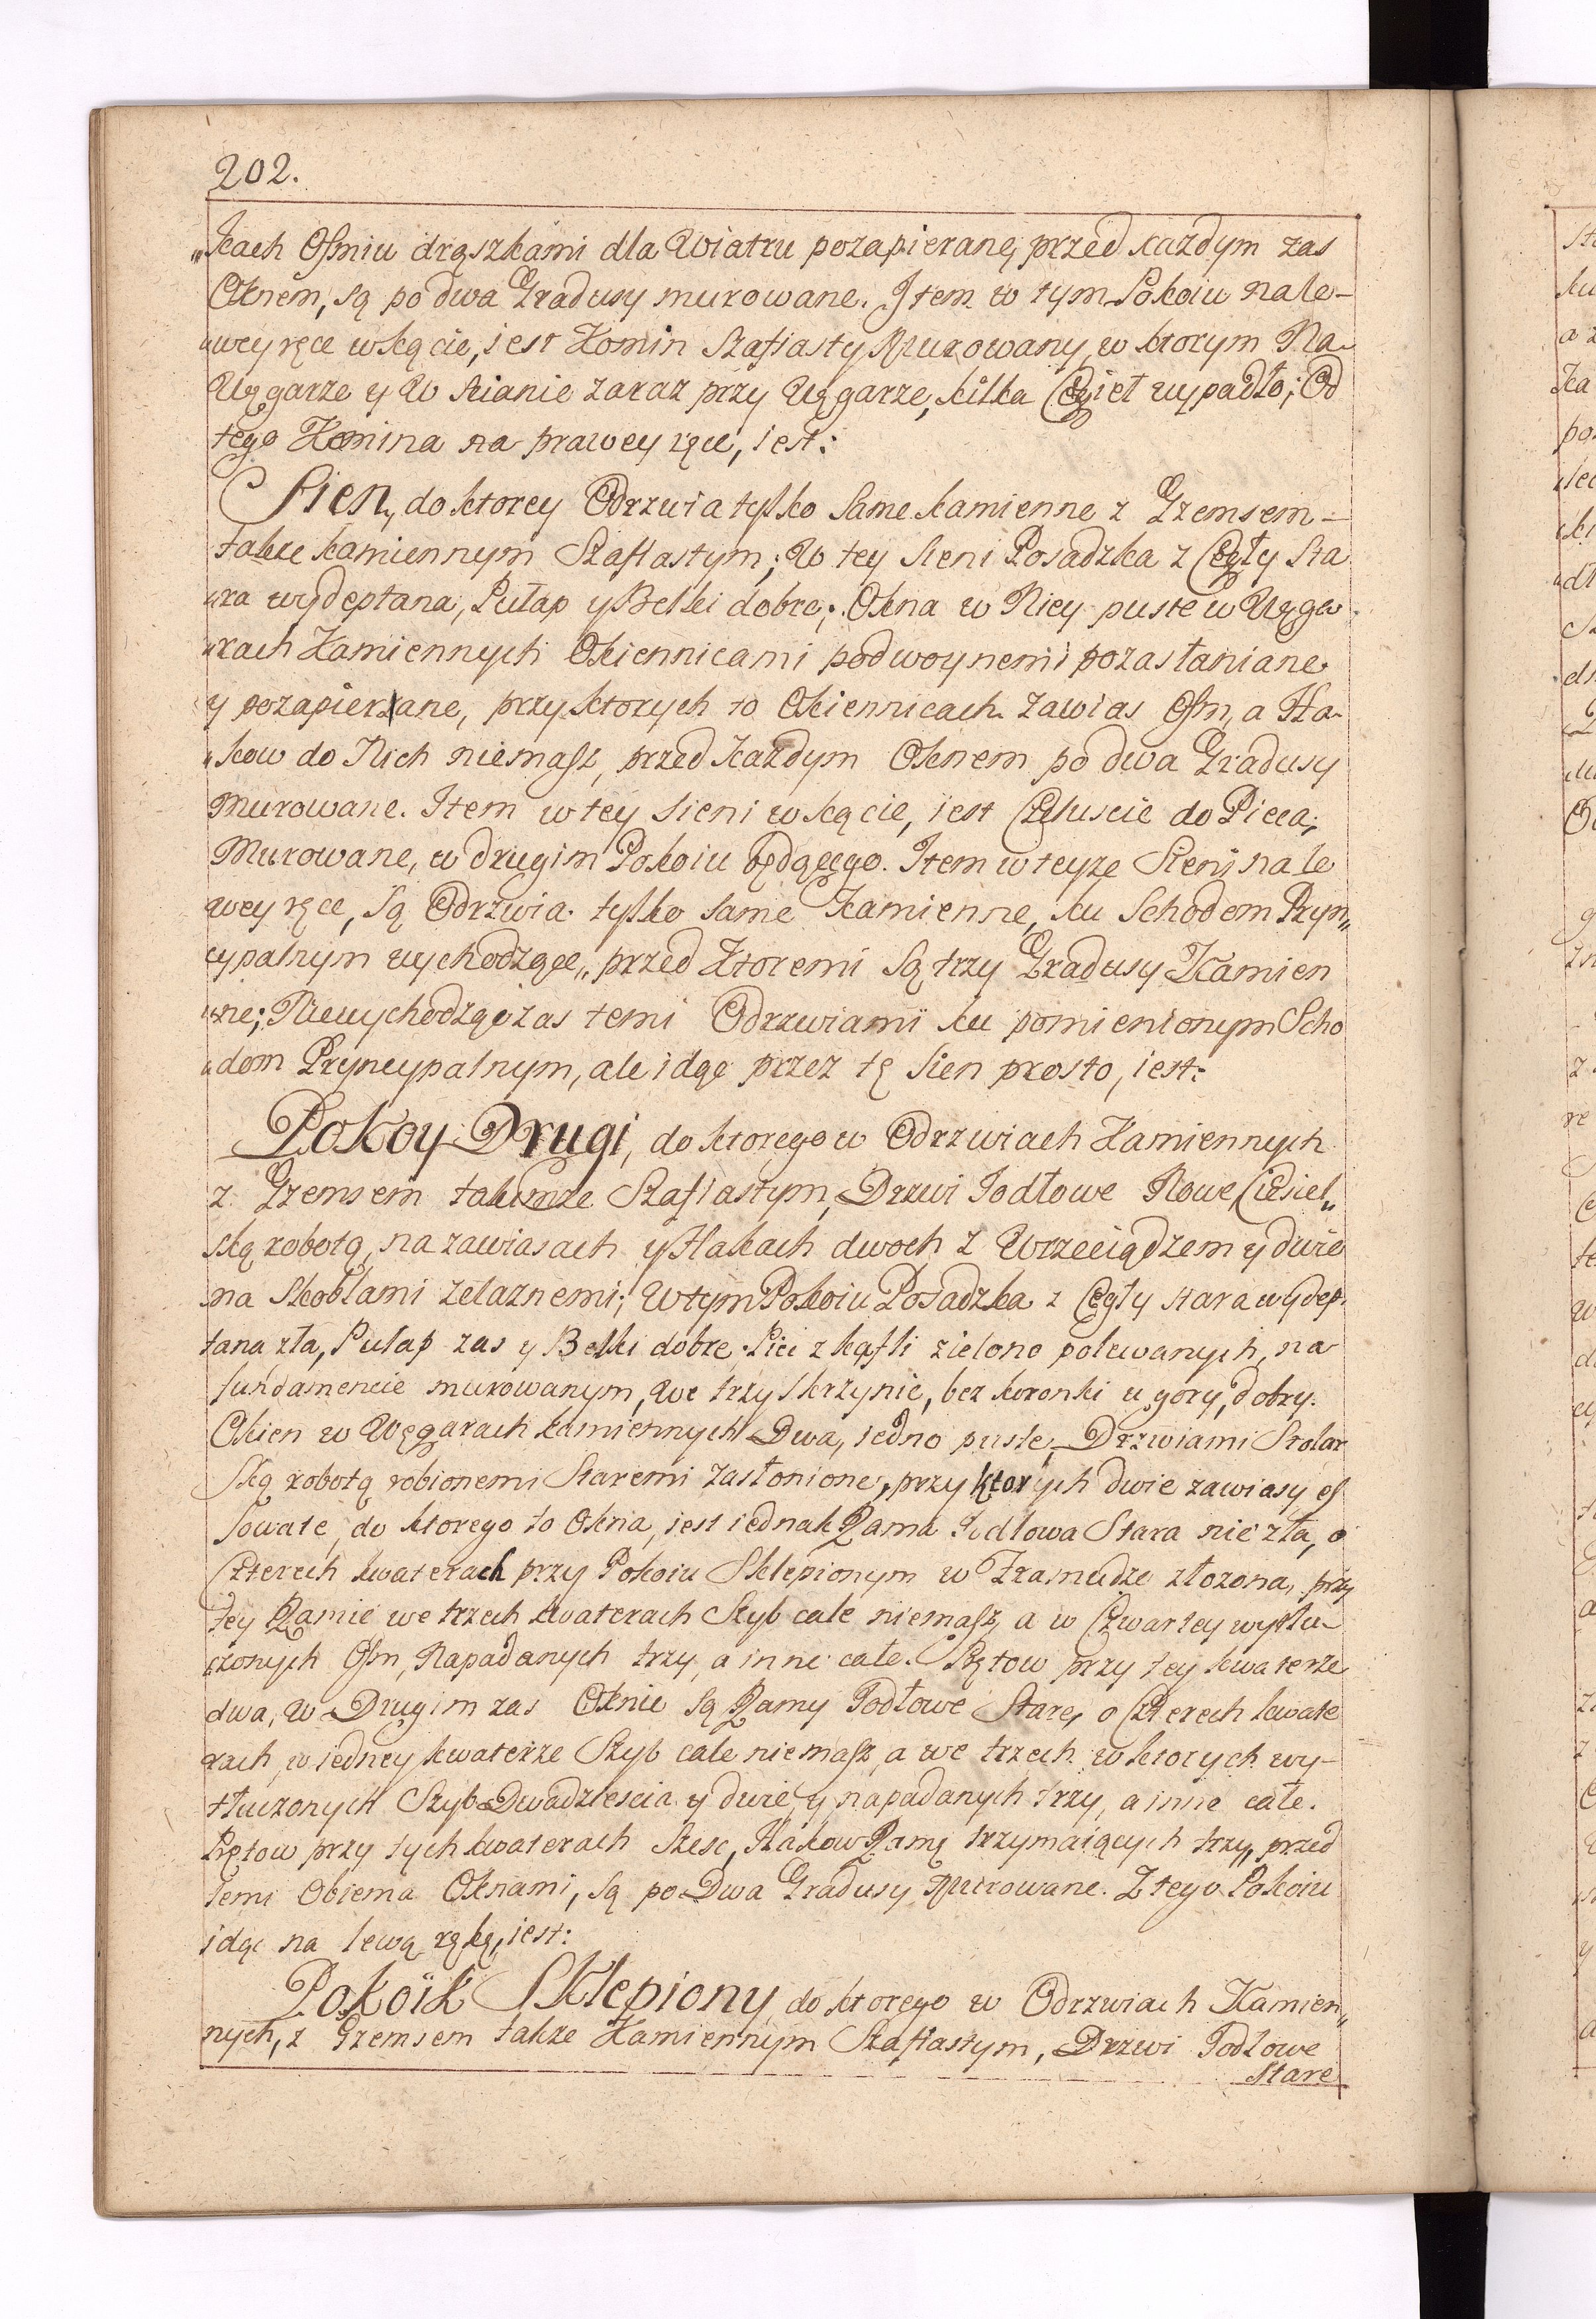 202.
„kach Ośmiu drąszkami dla Wiatru pozapierane, przed każdym zas
Oknem, są po dwa Gradusy murowane. Item w tym Pokoiu na le-
„wey ręce w kącie, iest Komin Szafiasty Murowany, w ktorym Na
Uggarze y W scianie zaraz przy Uggarze, kilka Cegieł wypadło; Od
tego Komina na prawey ręce, iest:
Sien, do ktorey Odrzwia tylko same kamienne z Gzemsem –
takze kamiennym Szafiastym; W tey sieni Posadzka z Cegły Sta
„ra wydeptana, Pułap y Belki dobre; Okna w Niey puste w Węga
„rach Kamiennych Okiennicami podwoynemi pozasłaniane
y pozapierane, przy ktorych to Okiennicach Zawias Ośm, a Ha-
„kow do Nich niemasz, przed Kazdym Oknem po dwa Gradusy
Murowane. Item w tey Sieni w kącie, iest Czeluscie do Pieca,
Murowane, w drugim Pokoiu będącego. Item w teyze Sieni na le
wey ręce, są Odrzwia tylko same Kamienne, ku Schodom Pryn„
cypalnym wychodzące, przed Ktoremi są trzy Gradusy Kamien
„ne; Niewychodząc zas temi Odrzwiami ku pomienionym Scho
„dom Pryncypalnym, ale idąc przez tę Sien prosto, iest:
Pokoy Drugi, do ktorego w Odrzwiach Kamiennych
z Gzemsem takimze Szafiastym, Drzwi Jodłowe Nowe Ciesiel„
ską robotą, na zawiasach y Hakach dwoch z Wrzeciądzem y dwie
ma Skoblami zelaznemi; W tym Pokoiu Posadzka z Cegły stara wydep
tana zła, Pułap zas y Belki dobre. Piec z kafli zielono polewanych, na
fundamencie murowanym, we trzy skrzynie, bez koronki u gory, dobry.
Okien w Węgarach kamiennych Dwa, iedno puste, Drzwiami Stolar
Ską robotą robionemi Staremi zasłonione, przy ktorych dwie zawiasy es
sowate, do ktorego to Okna, iest iednak Rama Jodłowa Stara nie zła, o
Czterech kwaterach przy Pokoiu Sklepionym w Framudze złozona, przy
tey Ramie we trzech kwaterach Szyb cale niemasz, a w Czwartey wytłu-
„czonych Ośm, Napadanych trzy, a inne całe. Prętow przy tey kwaterze
dwa, W Drugim zas Oknie są Ramy Jodłowe Stare, o Czterech kwate
rach, w iedney kwaterze Szyb cale niemasz, a we trzech w ktorych wy-
tłuczonych Szyb Dwadziescia y dwie, y napadanych trzy, a inne całe.
Prętow przy tych kwaterach Szesc, Hakow Ramę trzymaiących trzy, przed
temi Obiema Oknami, są po Dwa Gradusy Murowane. Z tego Pokoiu
idąc na lewą rękę, iest:
Pokoik Sklepiony do ktorego w Odrzwiach Kamien„
nych, z Gzemsem takze Kamiennym Szafiastym, Drzwi Jodłowe
Stare